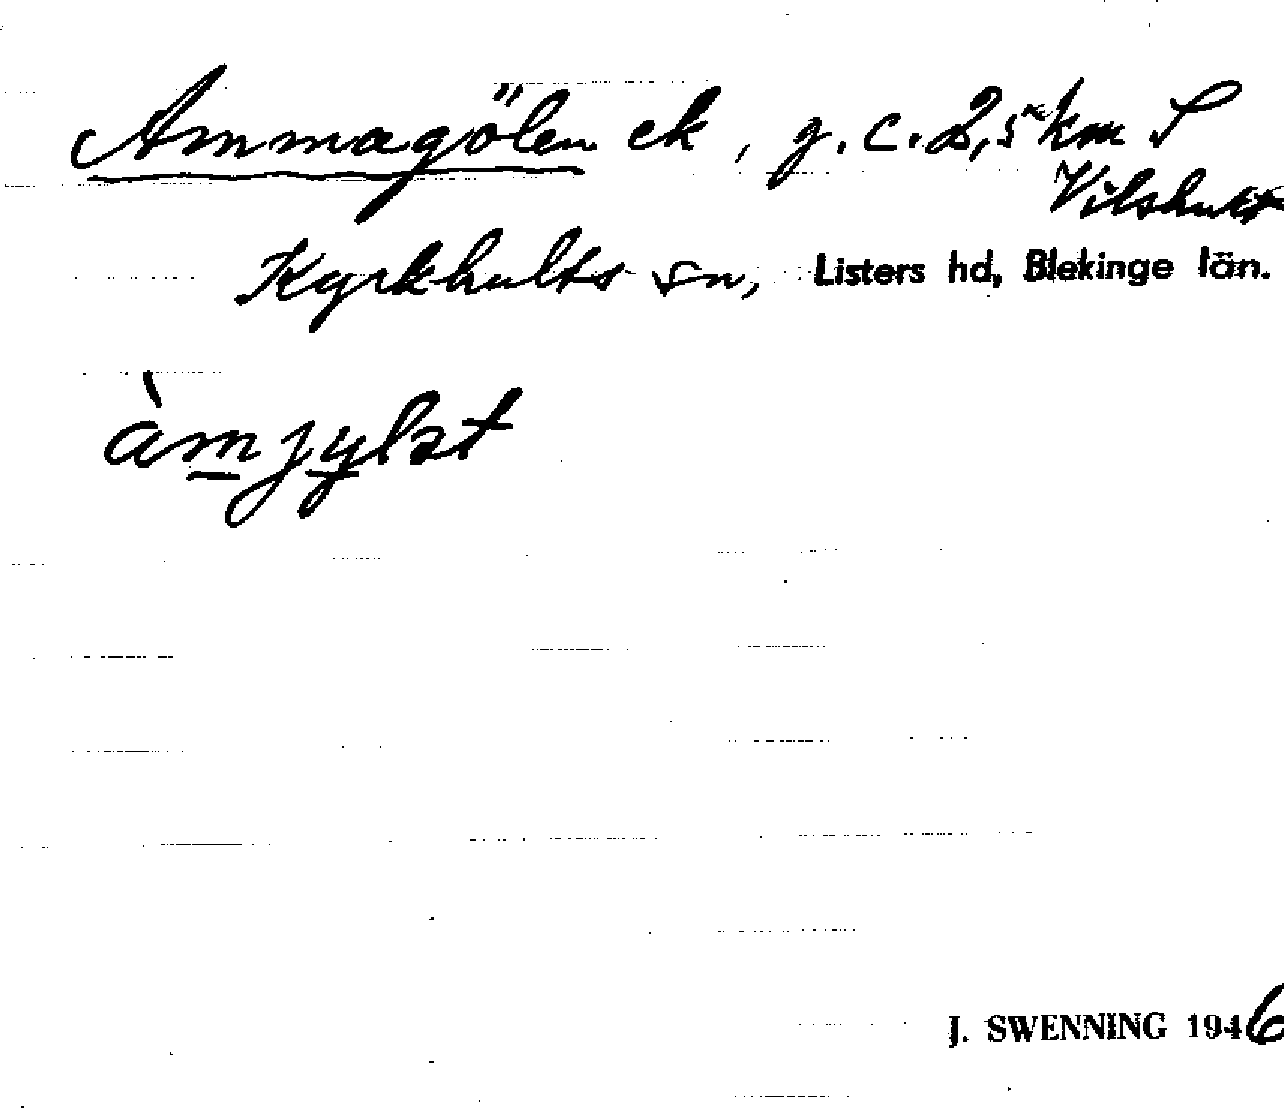 Ammagölen ek, g. c. 2,5 km S
Vilshult
Kyrkhults sn, Listers hd, Blekinge län.
J. SWENNING 1946